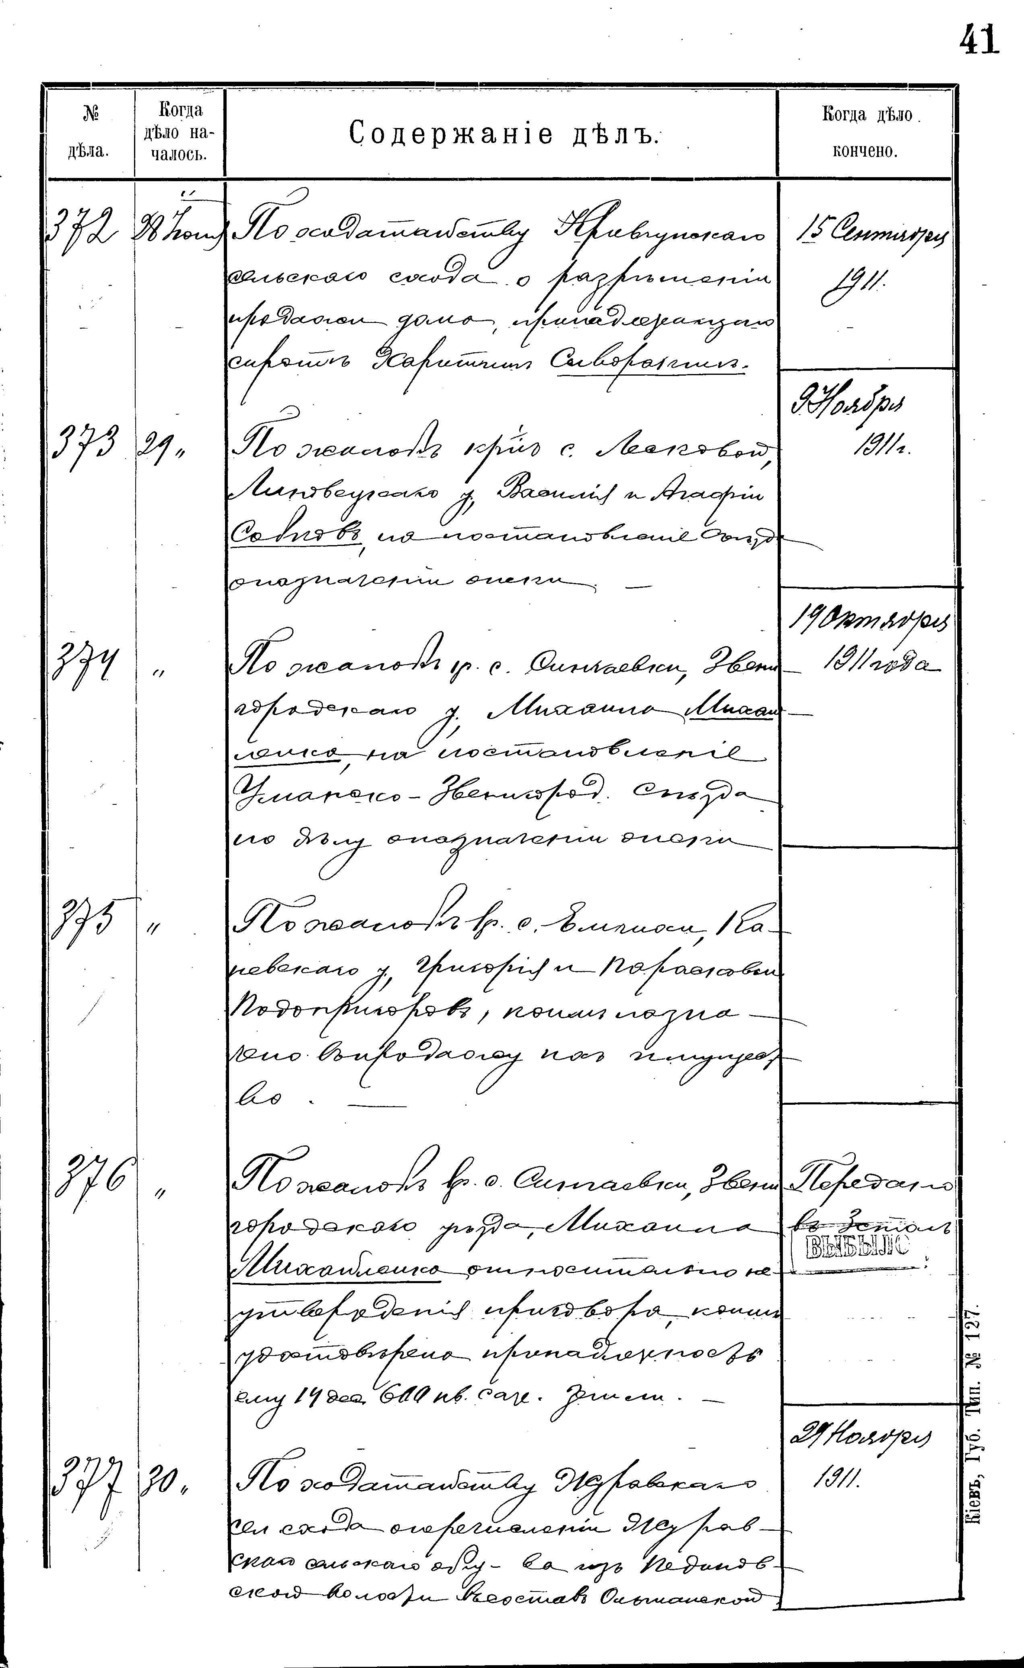 41
№ дѣла.
Когда дѣло на- чалось.
Содержаніе дѣлъ.
Когда дѣло кончено.
372
28
По ходатайству Кривчунскаго
сельскаго схода о разрѣшеніи
продажи дома, принадлежащаго
сиротѣ Харитинѣ
15 Сентября
1911.
373
29 „
По жалобѣ кр-нъ с.
у, Василія и Агафіи
на постановленіе
о назначеніи опеки. —
9 Ноября
1911 г.
374
„
По жалобѣ кр. с. Сичаевки, Звени
городскаго у, Михаила Михай
ленко, на постановленіе
Уманско-Звенигород. Съѣзда
по дѣлу о назначеніи опеки
19 Октября
1911 года
375
„
По жалобѣ кр. с. Емчихи, Ка-
невскаго у, Григорія и Парасковіи
Подопригоровъ, коимъ назна-
чено въ продажу ихъ имущест
во. —
376
„
По жалобѣ кр. с. Сичаевки, Звени
городскаго уѣзда, Михаила
Михайленко относительно не
утвержденія приговора, коимъ
удостовѣрена принадлежность
ему 14 дес. 600 кв. саж. земли. —
Передано
въ 3 столъ
ВЫБЫЛО
377
30 „
По ходатайству Журавскаго
сел схода о перечисленіи Журав-
скаго сельскаго общ-ва изъ
ской волости въ составъ Ольшанской
29 Ноября
1911.
Кіевъ, Губ. Тип. № 127.